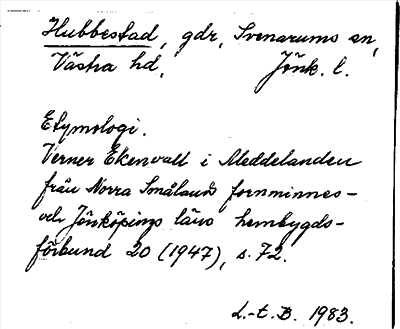 Hubbestad, gdr, Svenarums sn,
Västra hd, Jönk. l.
Etymologi.
Verner Ekenvall i Meddelanden
från Norra Smålands fornminnes-
och Jönköpings läns hembygds-
förbund 20 (1947), s. 72.
L.-t. B. 1983.